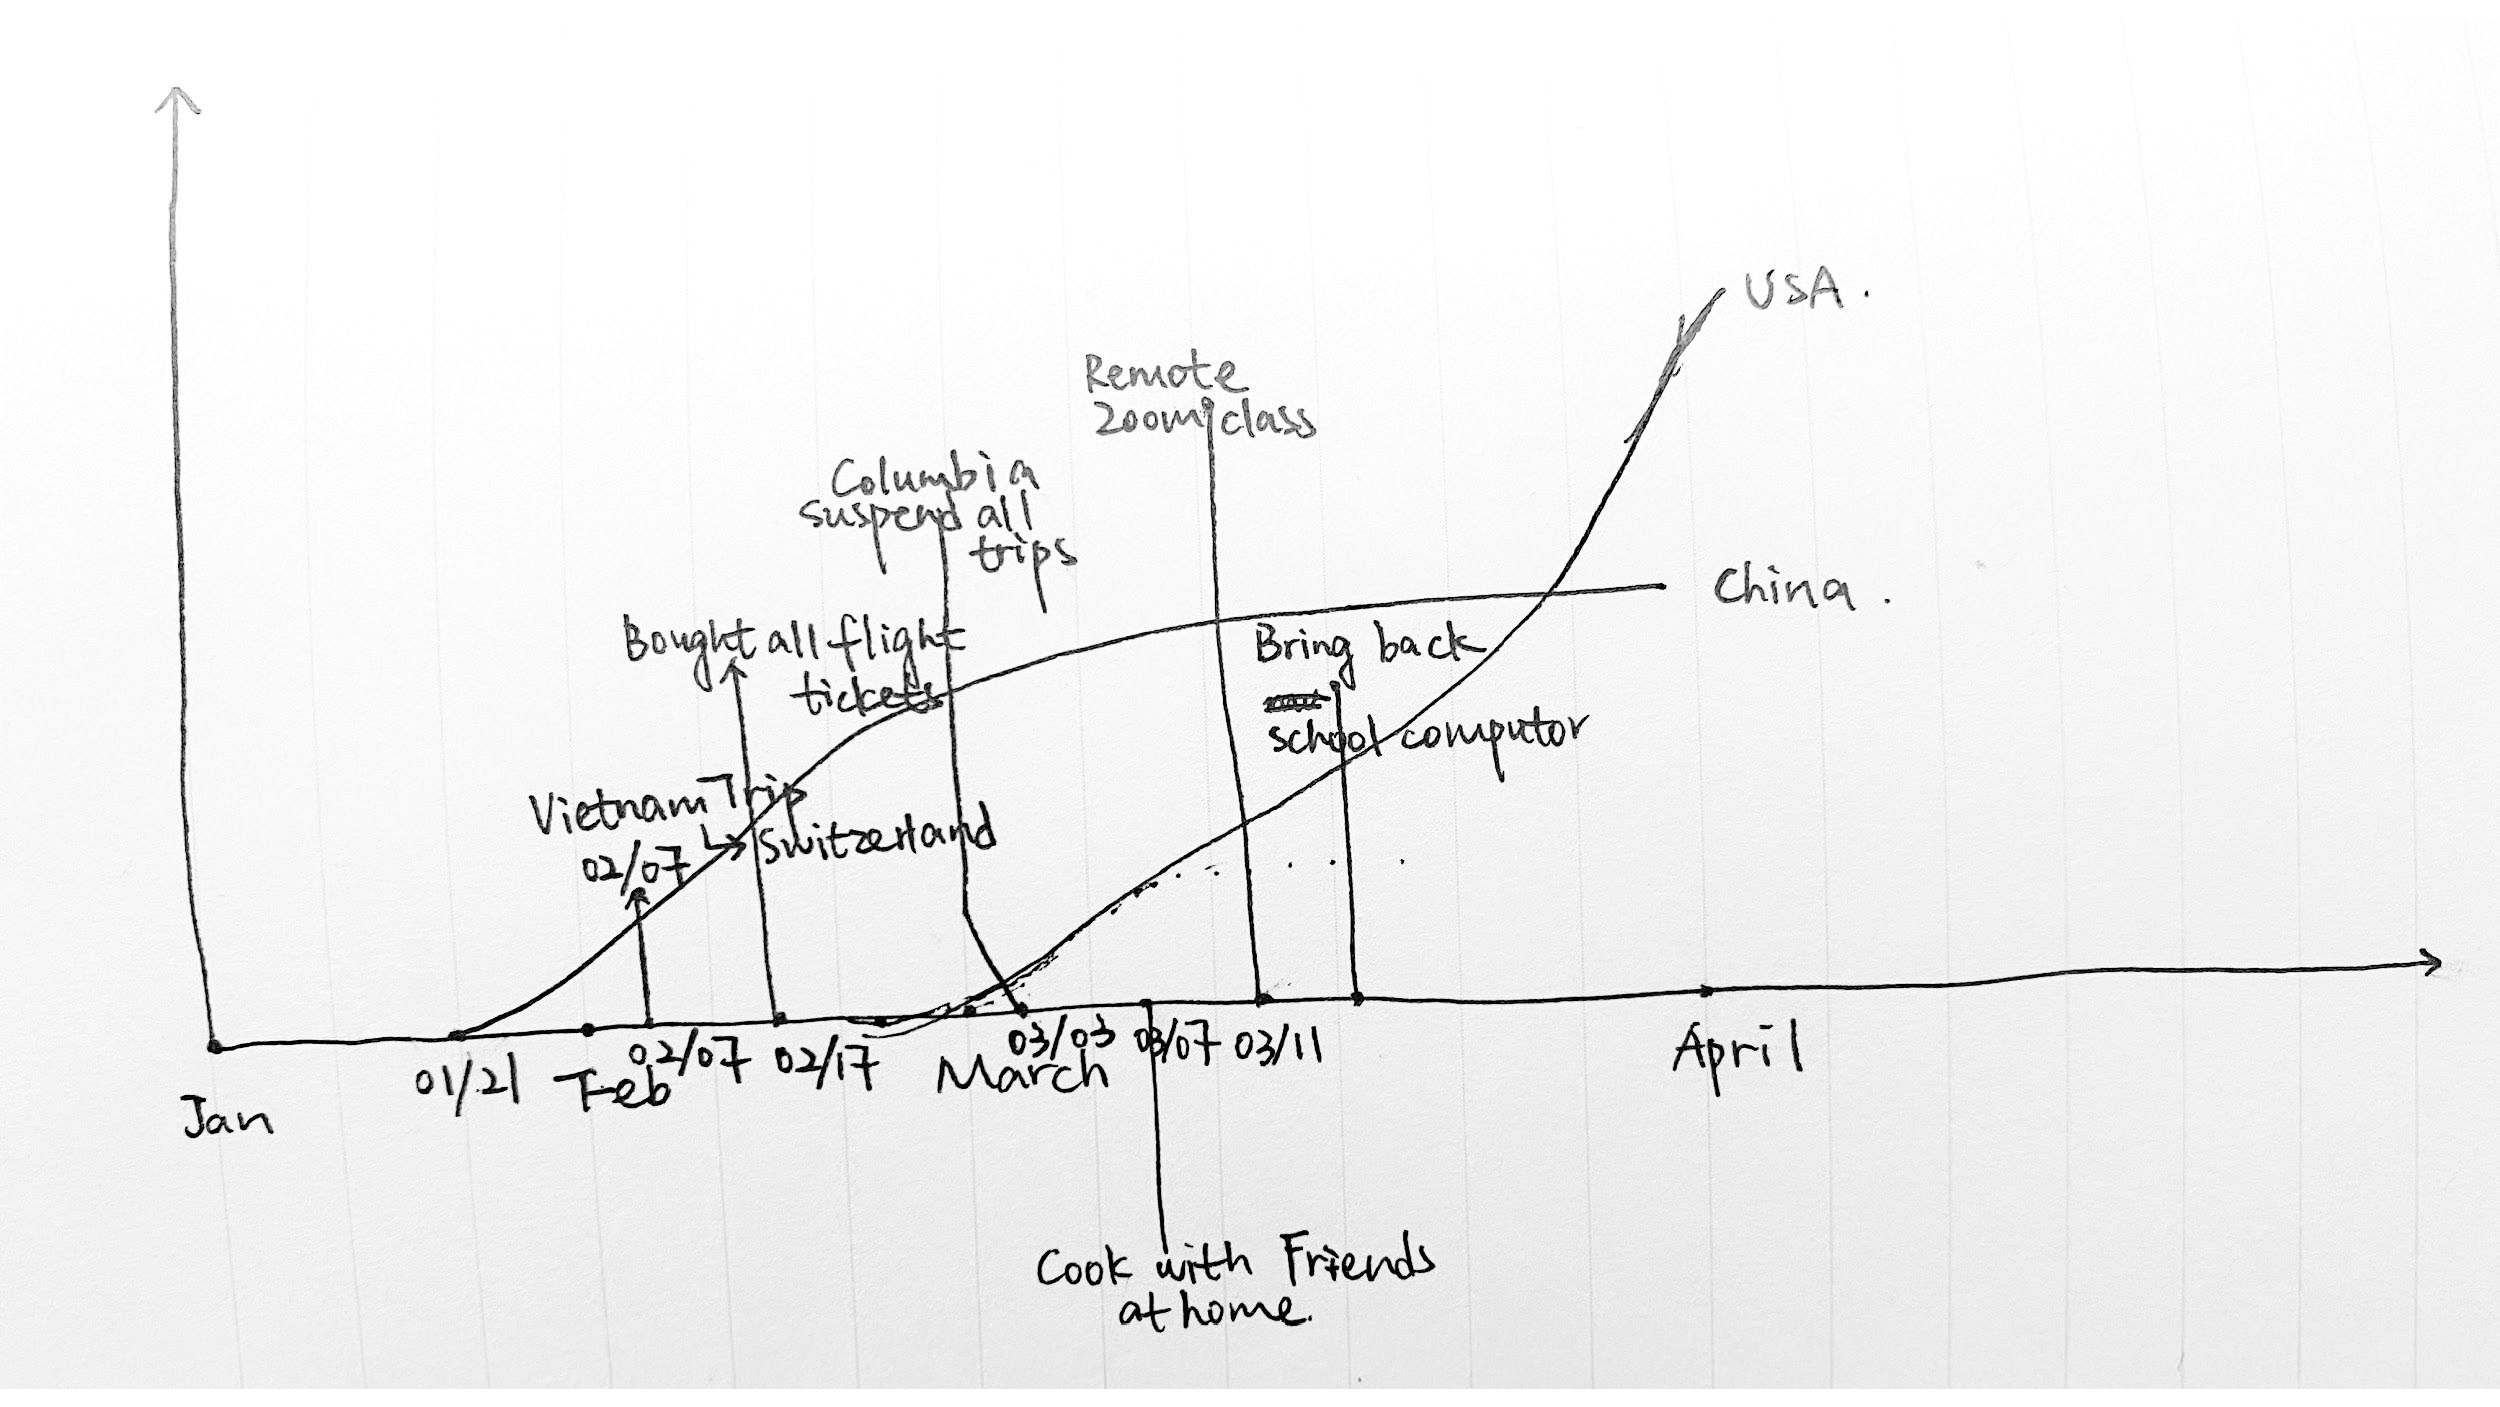 USA.
Remote
Zoom class
Columbia
suspend all
trips
China.
Bought all flight
tickets
Bring back
school computor
Vietnam Trip
Switzerland
02/07
01/21
Feb
02/07
02/17
March
03/03
03/07
03/11
April
Jan
Cook with Friends
at home.